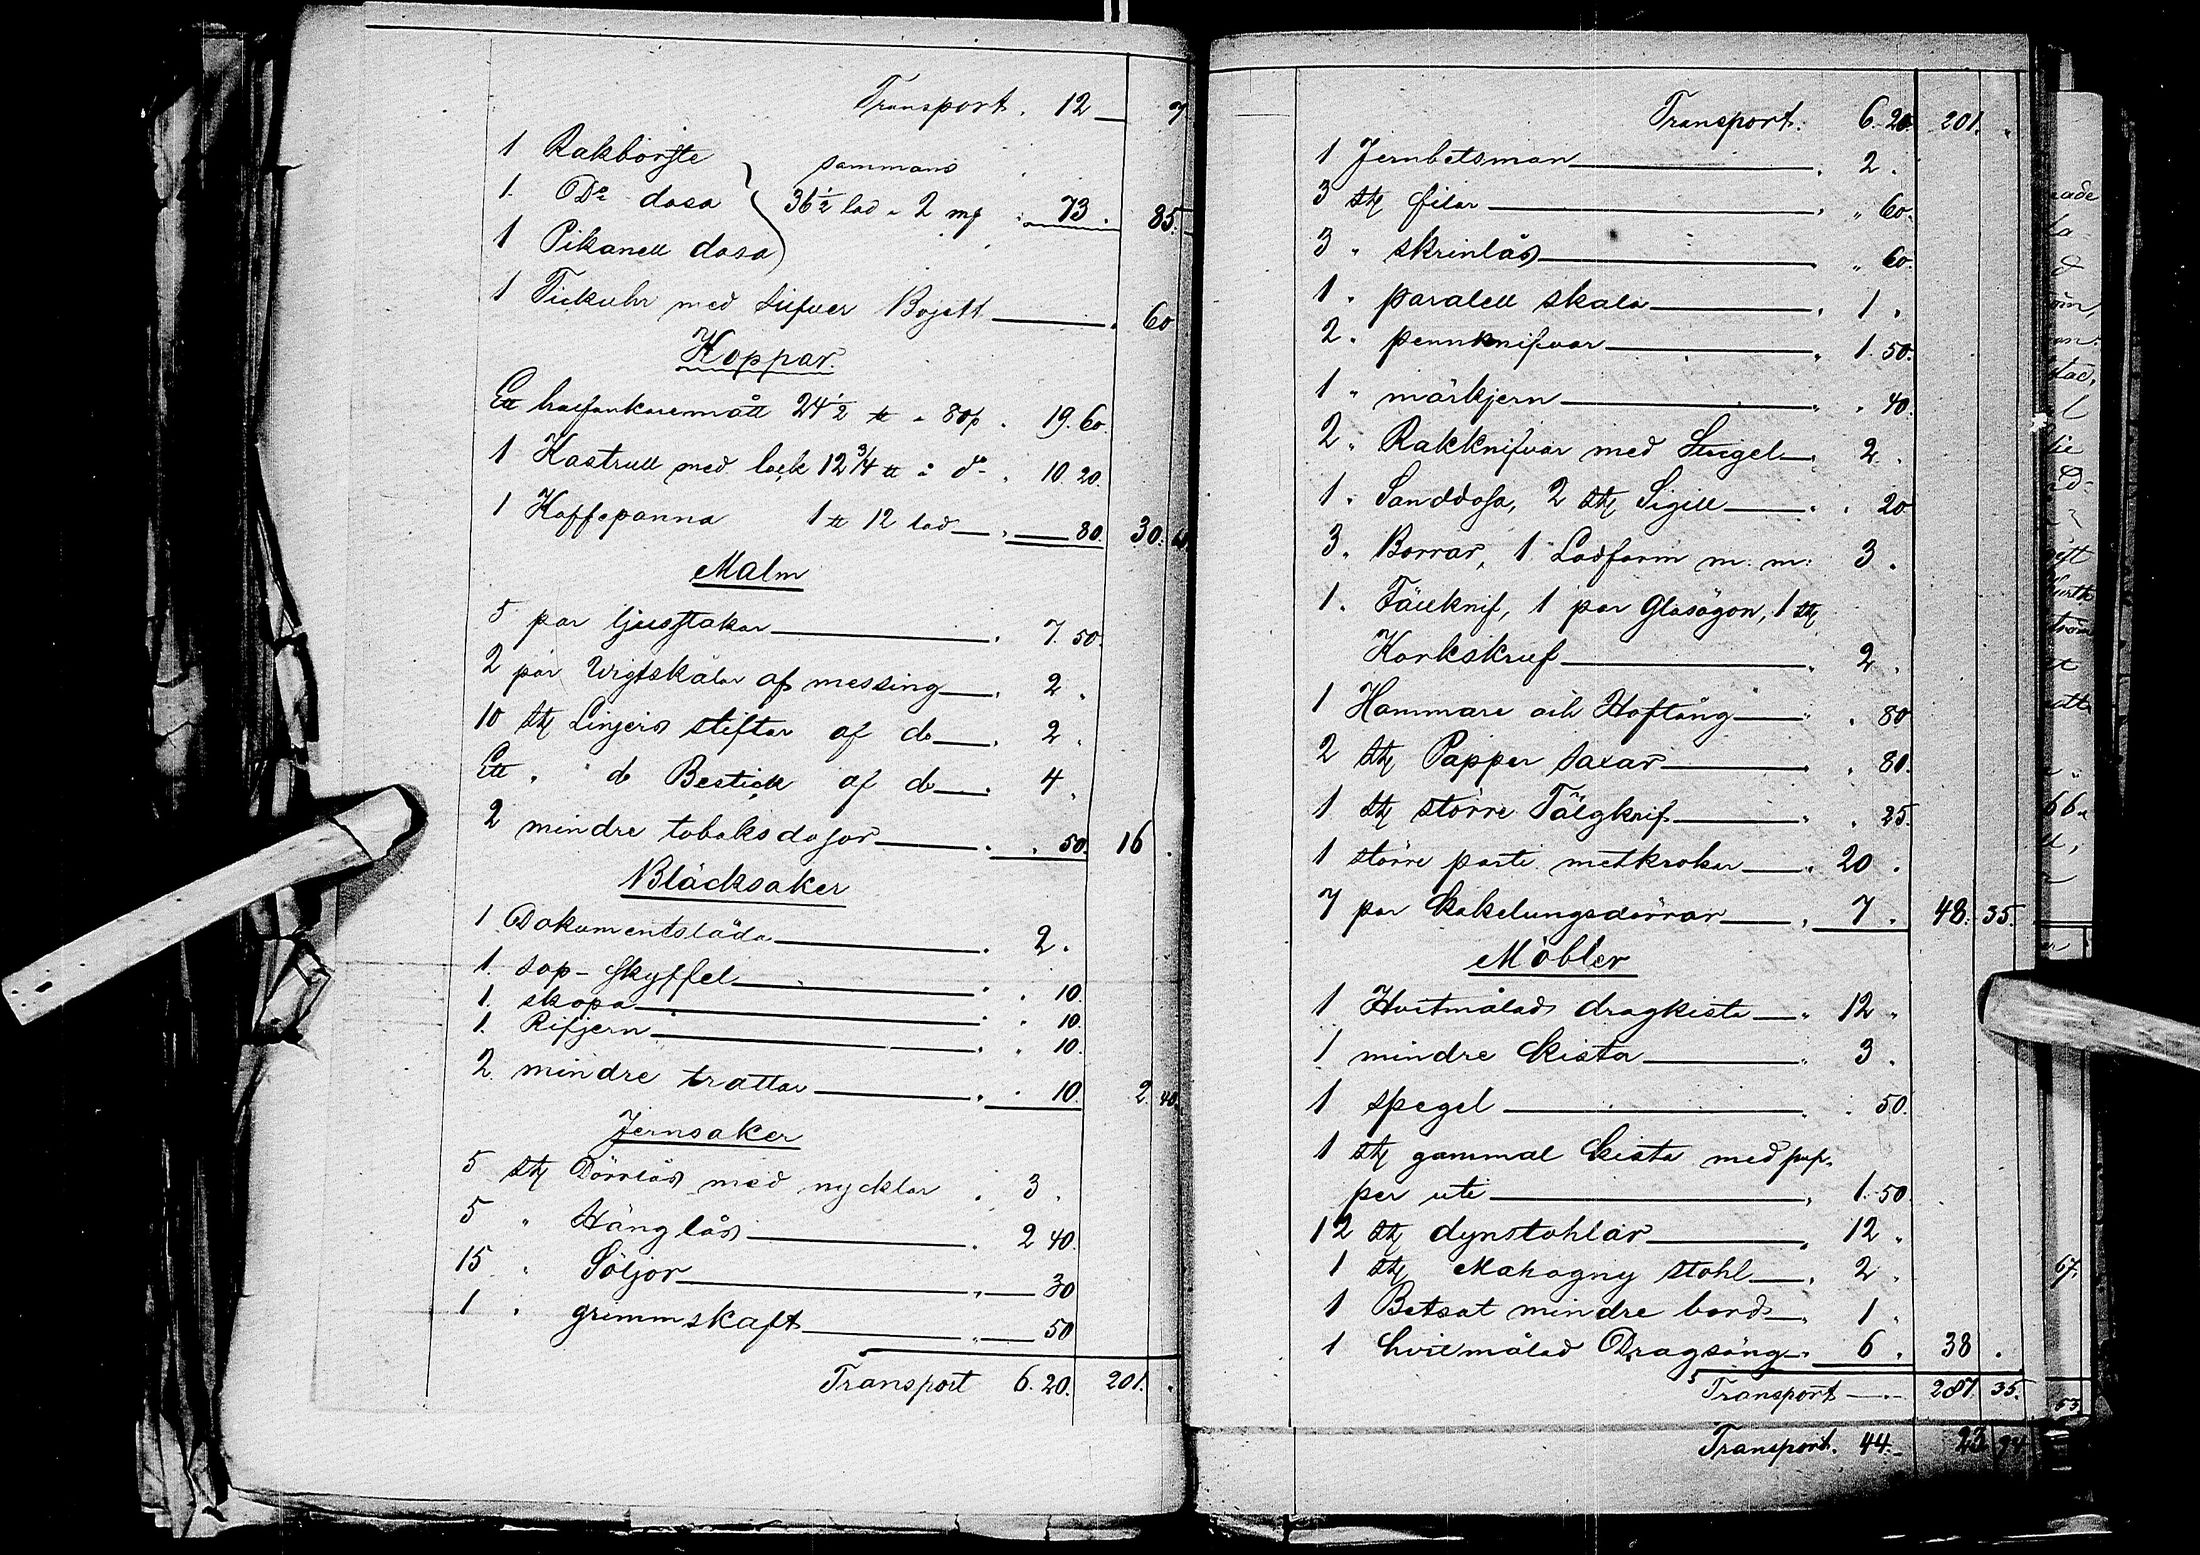 Transport. 12 7
1 Rakborste sammans
1. Do dosa 36 1/2 lod a 2 mf 73. 85.
1 Pikanell dosa
1 Fickuhr med Silfver Bojett 60
Koppar.
Ett halfankaremått 24 1/2 ℔ a 80p. 19. 60.
1 Kastrull med lock 12 3/4 ℔ a do 10. 20.
1 Kaffepanna 1 ℔ 12 lod 80. 30. 60
Malm
5 par ljusstakar 7. 50.
2 par Vigtskålar af messing 2.
10 st Linjers stiftar af do 2.
Ett " do Bestick af do 4.
2 mindre tobaksdosor 50. 16.
Bläcksaker
1 Dokumentslåda 2.
1. sop-skyffel 10.
1. skopa 10.
1. Rifjern 10.
2. mindre trattar 10. 2. 40.
Jernsaker
5 st Dörrlås med nycklar 3.
5 " Hänglås 2 40.
15 " Söljor 30
1 " grimmskaft 50
Transport 6. 20. 201.
Transport. 6. 20. 201.
1 Jernbetsman 2.
3 st filar " 60.
3 " skrinlås " 60.
1. paralell skala 1.
2. pennknifvar 1. 50.
1 " märkjern " 40.
2. Rakknifvar med Strigel 2.
1. Sanddosa, 2 st Sigill 20
3. Borrar, 1 Lodform m: m: 3.
1. Fällknif, 1 par Glasögon, 1 st
Korkskruf 2.
1 Hammare och Hoftång 80
2 st Papper saxar 80.
1 st större Tälgknif 25.
1 större parti metkrokar 20.
7 par kakelungsdörrar 7. 48. 35.
Möbler
1 Hvitmålad dragkista 12 "
1 mindre kista 3.
1 spegel 50.
1 st gammal kista med pap-
per uti 1. 50.
12 st dynstohlar 12 "
1 st Mahogny stohl 2 "
1 Betsat mindre bord 1 "
1 hvitmålad Dragsäng 6. 38.
Transport 287. 35.
Transport. 44. 23